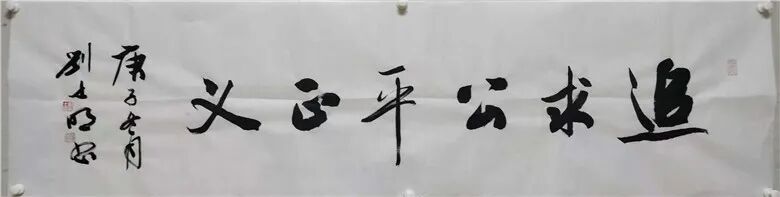 追求公平正义
庚子冬月
刘士明书